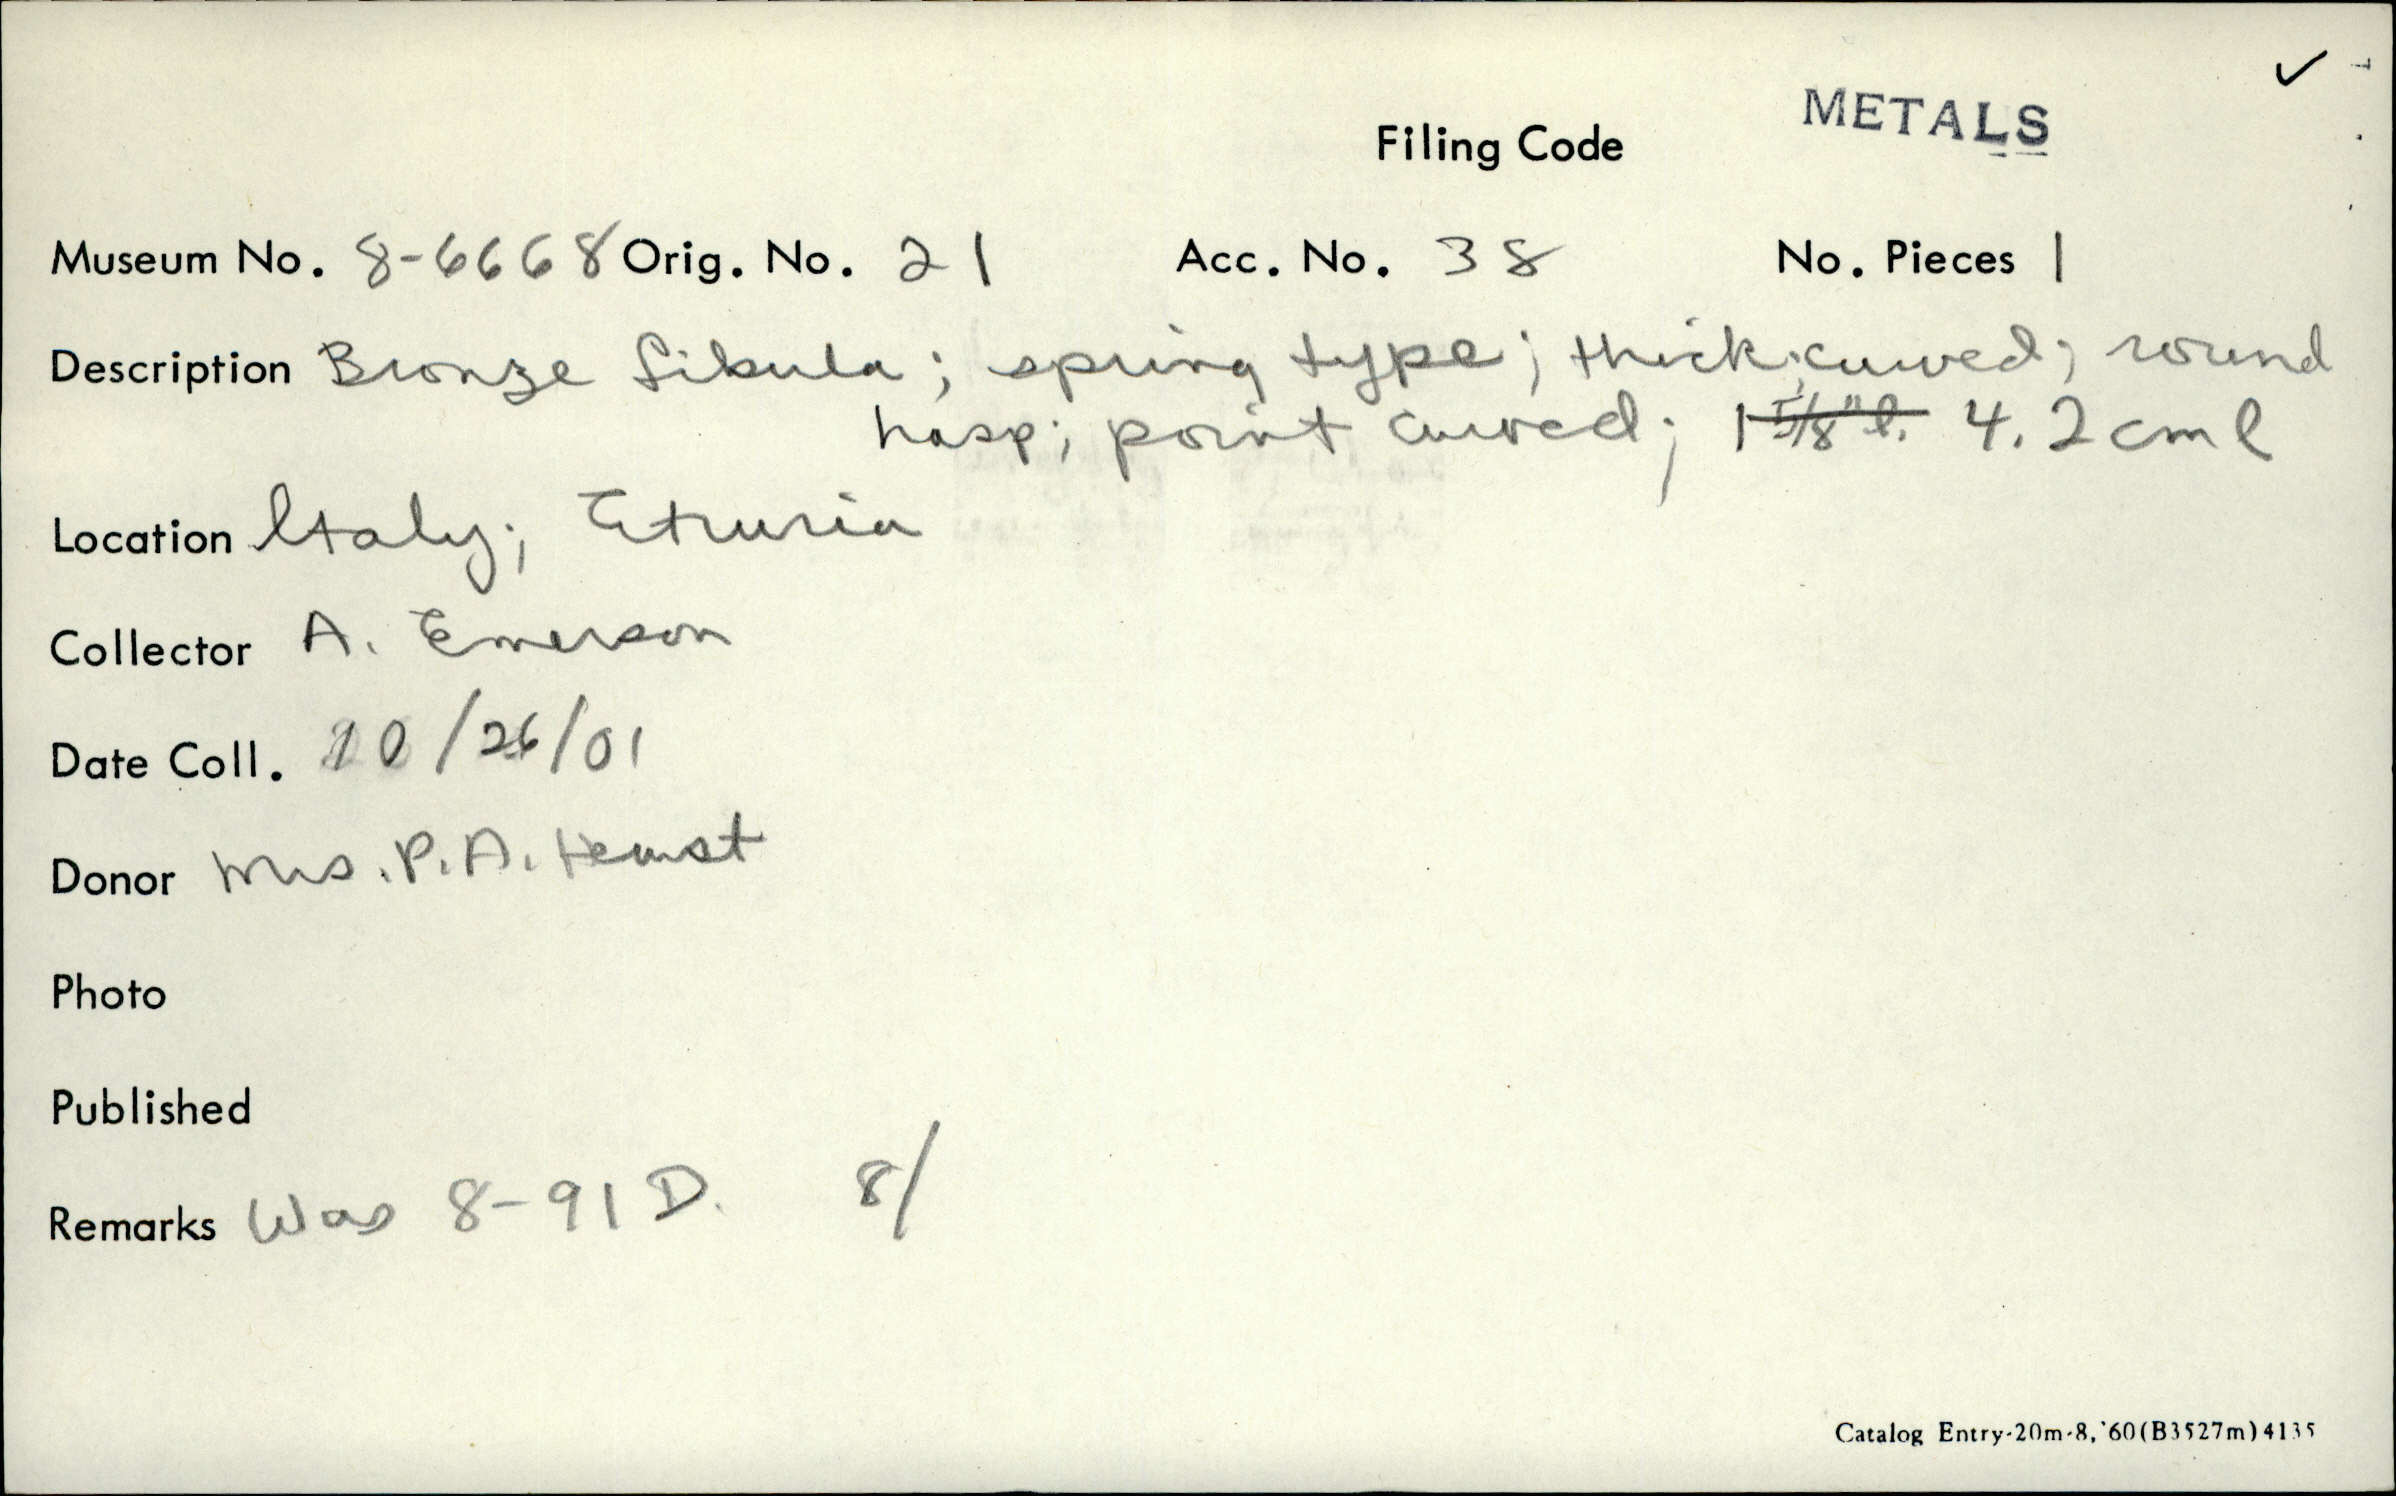 METALS
Filing Code
Museum No. 8-6668 Orig. No. 21 Acc. No. 38 No. Pieces 1
Description Bronze fibula; spring type; thick; curved; round
hasp; point curved; 1 5/8" l. 4.2 cm l
Location Italy; Etruria
Collector A. Emerson
Date Coll. 10/26/01
Donor Mrs. P. A. Hearst
Photo
Published
Remarks Was 8-91 D. 8/
Catalog Entry-20m-8,'60(B3527m)4135